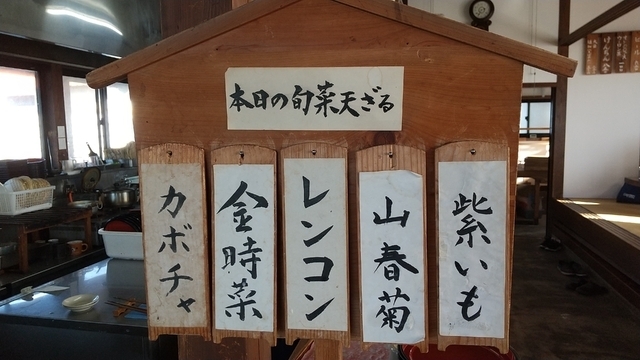 本日の旬菜天ざる
紫いも
山春菊
レンコン
金時菜
カボチャ